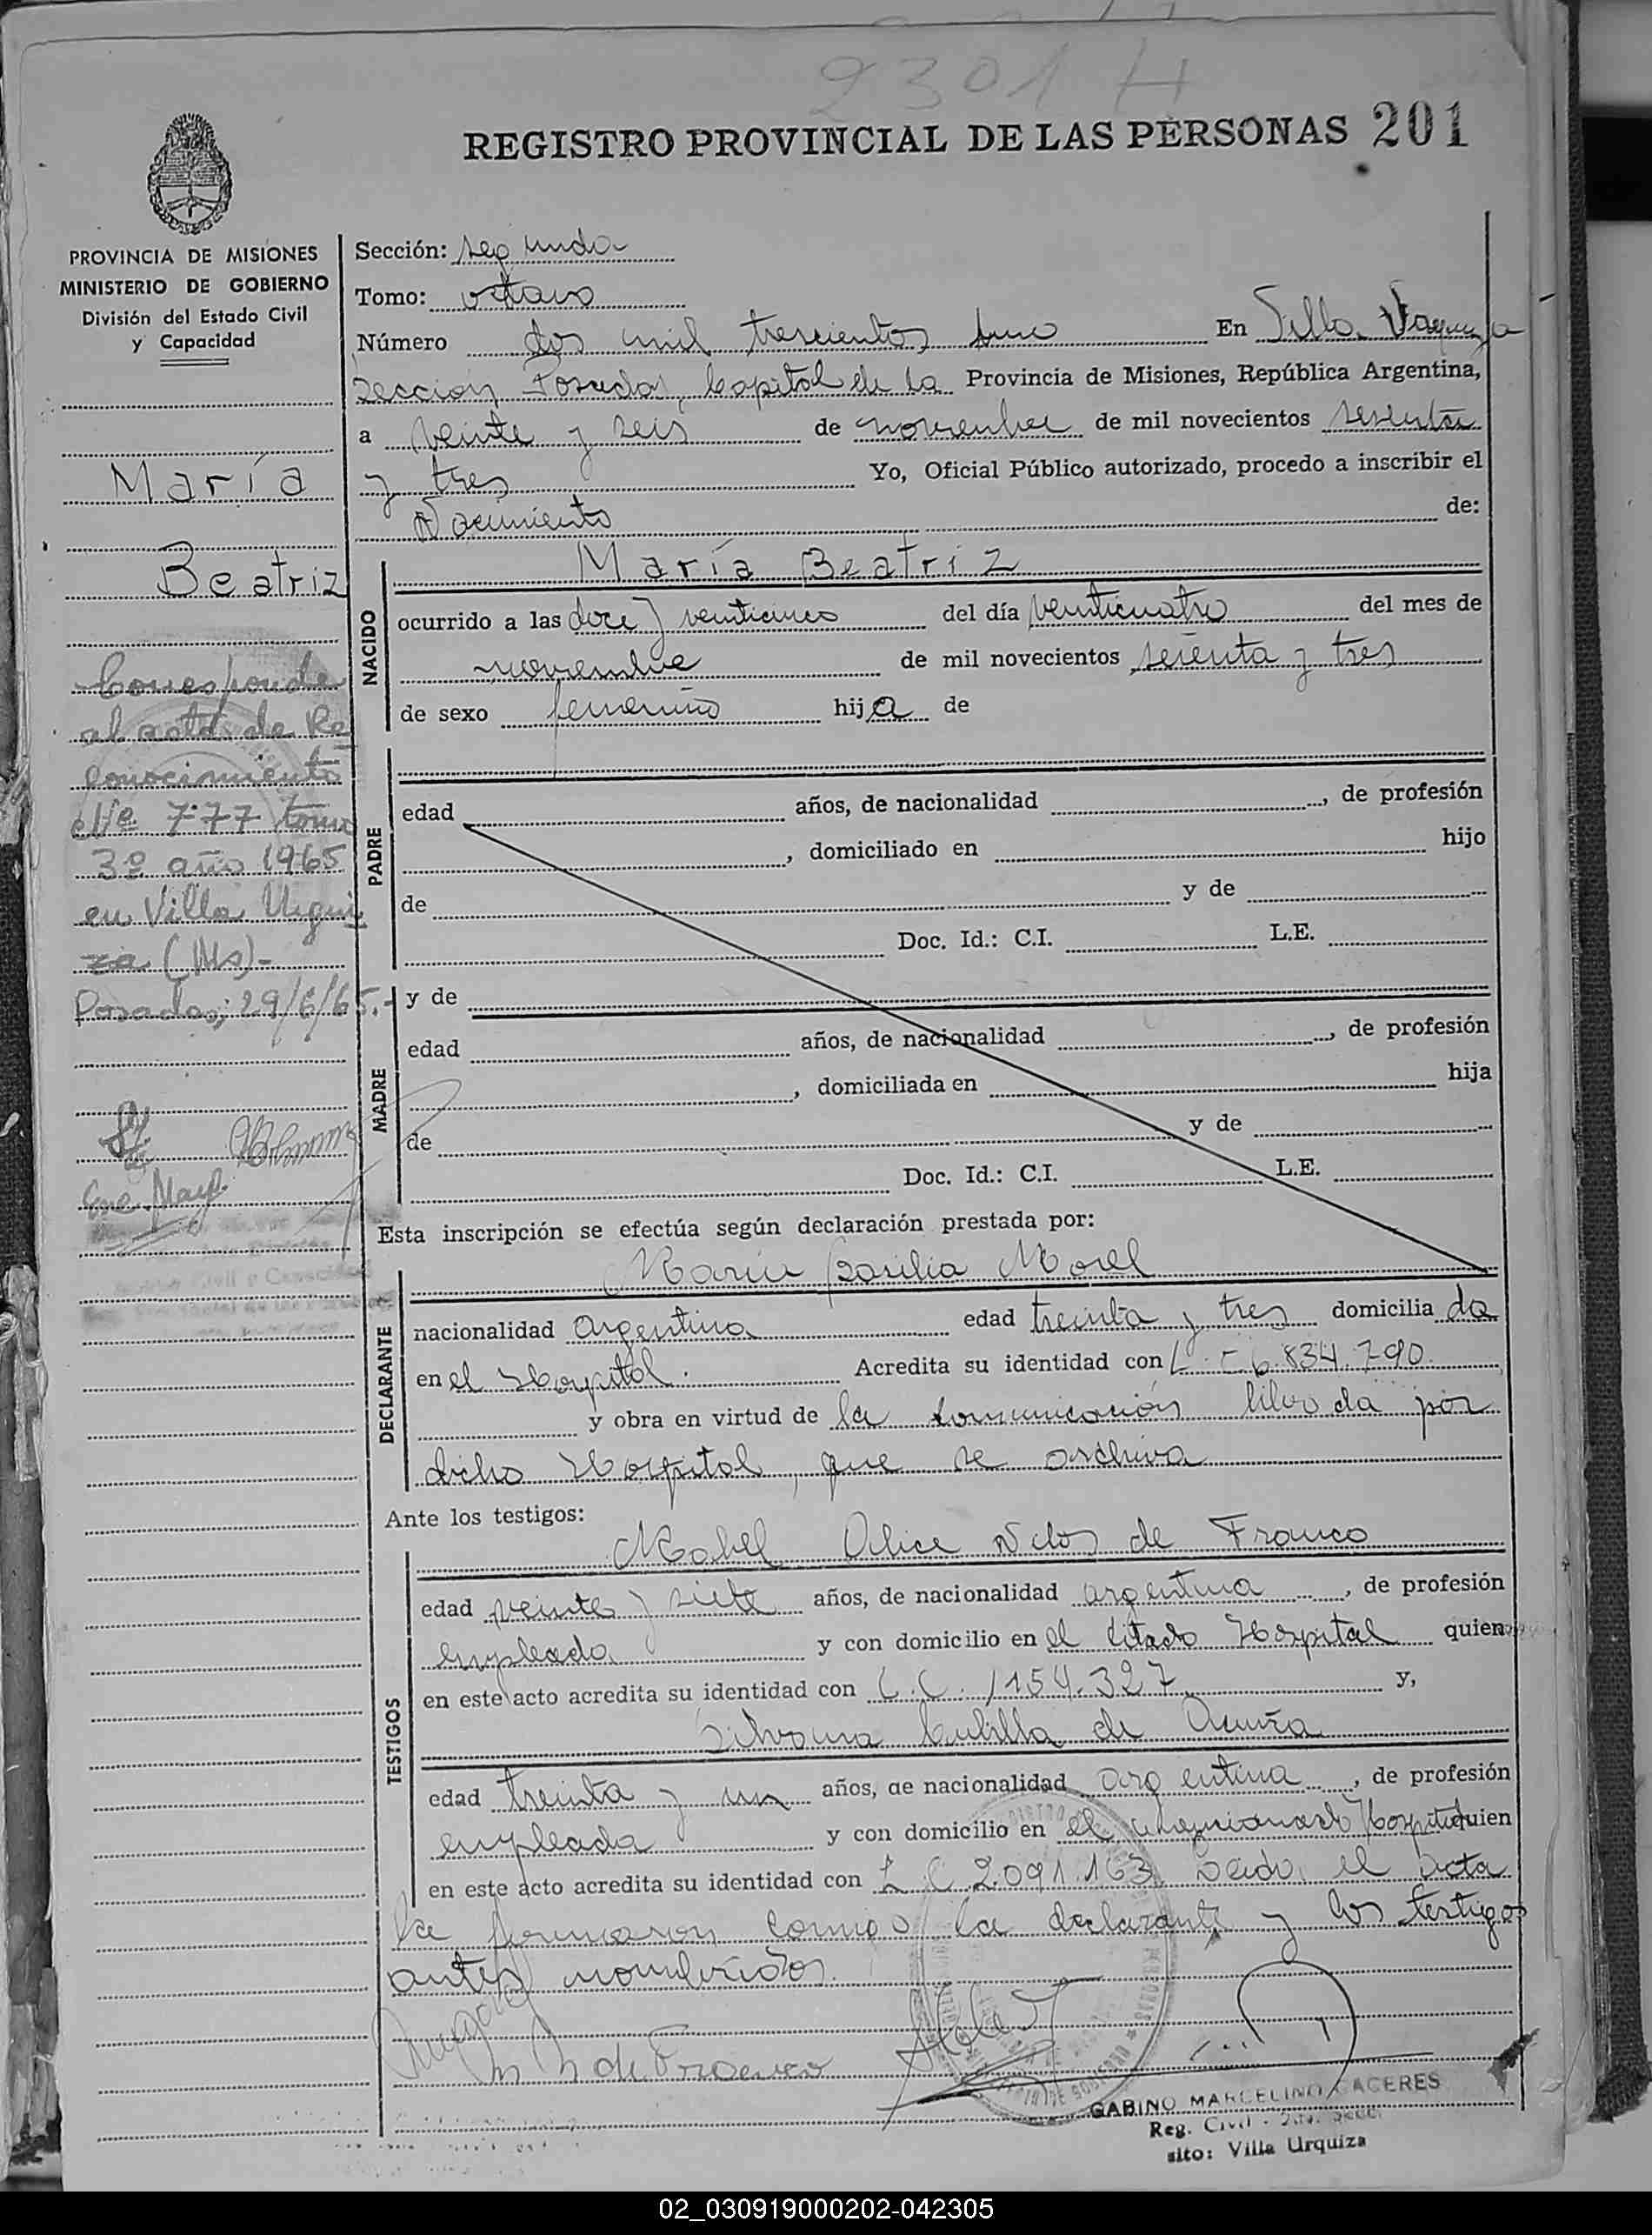 2301 H
REGISTRO PROVINCIAL DE LAS PERSONAS 201
PROVINCIA DE MISIONES
MINISTERIO DE GOBIERNO
División del Estado Civil
y Capacidad
María
Beatriz
Corresponde
al acta de Re
conocimiento
777 tomo
3º año 1965
en Villa Urqui
za (Ms)-
Posadas; 29/6/65.-
Sección: segunda
Tomo: octavo
Número dos mil trescientos uno En Villa Urquiza
Seccion Posadas, Capital de la Provincia de Misiones, República Argentina,
a veinte y seis de noviembre de mil novecientos sesenta
y tres Yo, Oficial Público autorizado, procedo a inscribir el
Nacimiento de:
NACIDO
María Beatriz
ocurrido a las doce y veinticinco del día veinticuatro del mes de
noviembre de mil novecientos sesenta y tres
de sexo femenino hija de
PADRE
edad años, de nacionalidad , de profesión
, domiciliado en hijo
de y de
Doc. Id.: C.I. L.E.
MADRE
y de
edad años, de nacionalidad , de profesión
, domiciliada en hija
de y de
Doc. Id.: C.I. L.E.
Esta inscripción se efectúa según declaración prestada por:
DECLARANTE
María Basilia Morel
nacionalidad argentina edad treinta y tres domicilia da
en el Hospital. Acredita su identidad con 6.834.790
y obra en virtud de la comunicación librada por
dicho Hospital, que se archiva
Ante los testigos:
TESTIGOS
Mabel Alice de Franco
edad veinte y siete años, de nacionalidad argentina , de profesión
empleada y con domicilio en el citado Hospital quien
en este acto acredita su identidad con L.C. 1154.327 y,
Silvana Cubilla de Acuña
edad treinta y un años, de nacionalidad argentina , de profesión
empleada y con domicilio en el mencionado Hospital quien
en este acto acredita su identidad con L C 2.091.163 Leida el acta
la firmaron conmigo la declarante y los testigos
antes nombrados.
de Franco
GABINO MARCELINO CACERES
Reg. Civil - 2da. Secc.
sito: Villa Urquiza
02_030919000202-042305